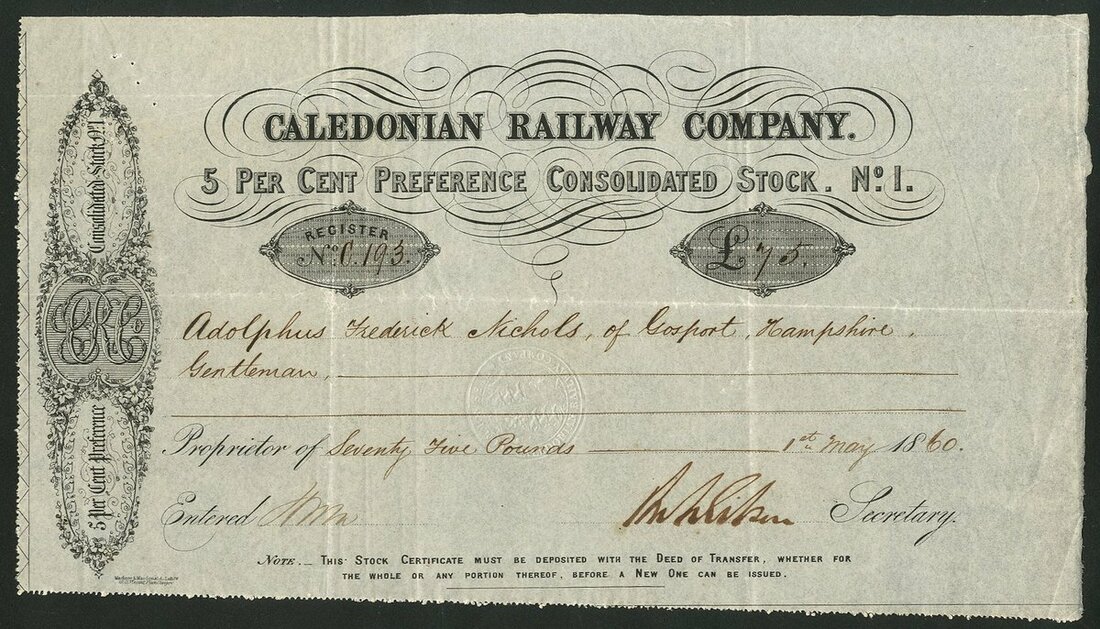 CALEDONIAN RAILWAY COMPANY.
5 PER CENT PREFERENCE CONSOLIDATED STOCK. No. 1.
REGISTER
No. C. 193.
£75.
Adolphus Frederick Nichols, of Gosport, Hampshire,
Gentleman,
Proprietor of Seventy Five Pounds 1st May 1860.
Entered
Secretary.
NOTE._ THIS STOCK CERTIFICATE MUST BE DEPOSITED WITH THE DEED OF TRANSFER, WHETHER FOR
THE WHOLE OR ANY PORTION THEREOF, BEFORE A NEW ONE CAN BE ISSUED.
5 Per Cent Preference
CRC
Consolidated Stock No. 1